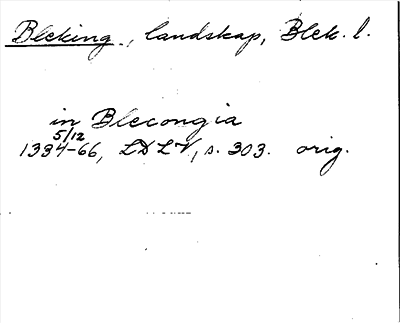 Bleking, landskap, Blek. l.
in Blecongia
5/12
1334-66, LDLV, s. 303. orig.